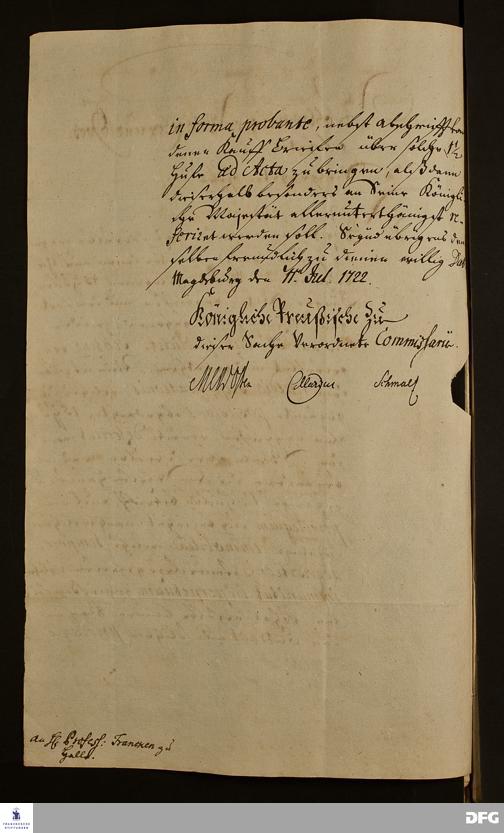 in forma probante, nebst abschrifft von
denen Kauff Brieffen über solche 1½
Hufe ad Acta zu bringen, alß dann
dieserhalb besonders an Seine Königli-
che Majestät allerunterthänigst re-
feriret werden soll. Seynd übrigens den
selben freundlich zu dienen willig
Magdeburg den Jul. 1722.
Königliche Preußische zu
dieser Sache Verordnete Commissarii.
Schmalz
an H. Profess: Francken zu
Halle.
FRANCKESCHE
STIFTUNGEN
DFG